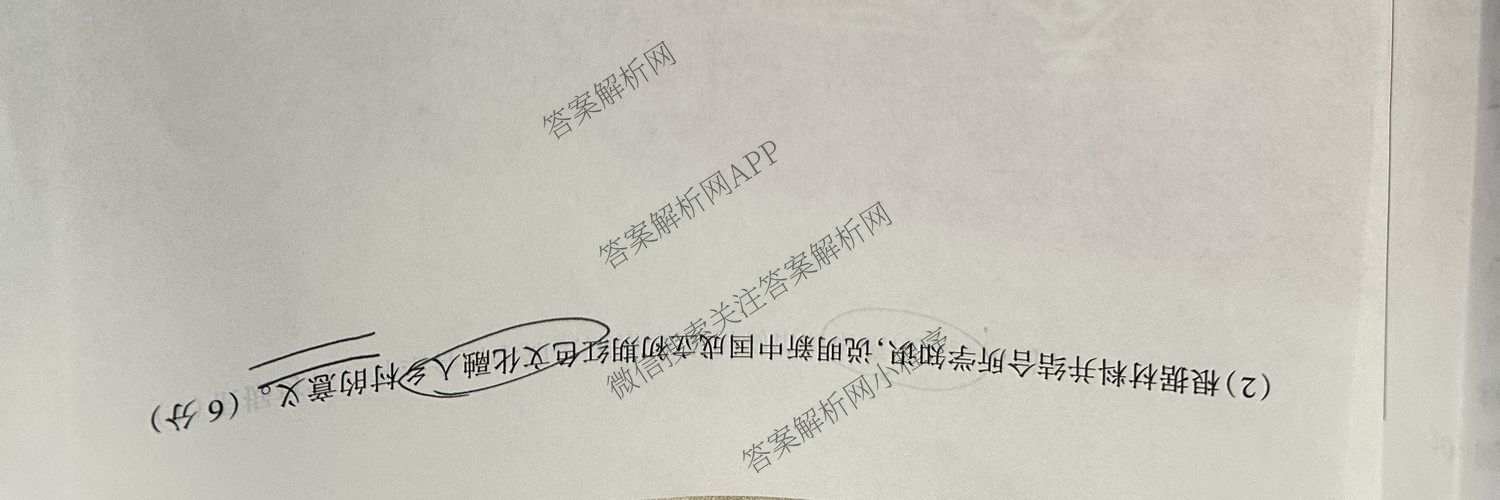 (2)根据材料并结合所学知识,说明新中国成立初期红色文化融入乡村的意义。(6分)
答案解析网
答案解析网APP
微信搜索关注答案解析网
答案解析网小程序